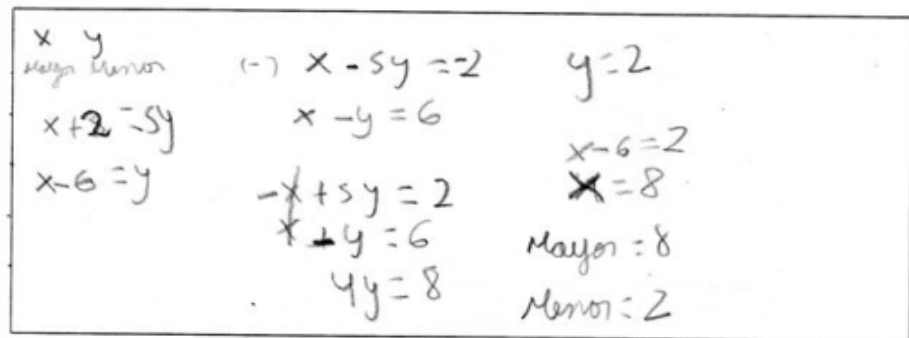 x y
Mayor Menor
x+2=5y
x-6=y
(-) x-5y=-2
x-y=6
-x+5y=2
x-y=6
4y=8
y=2
x-6=2
x=8
Mayor=8
Menor=2